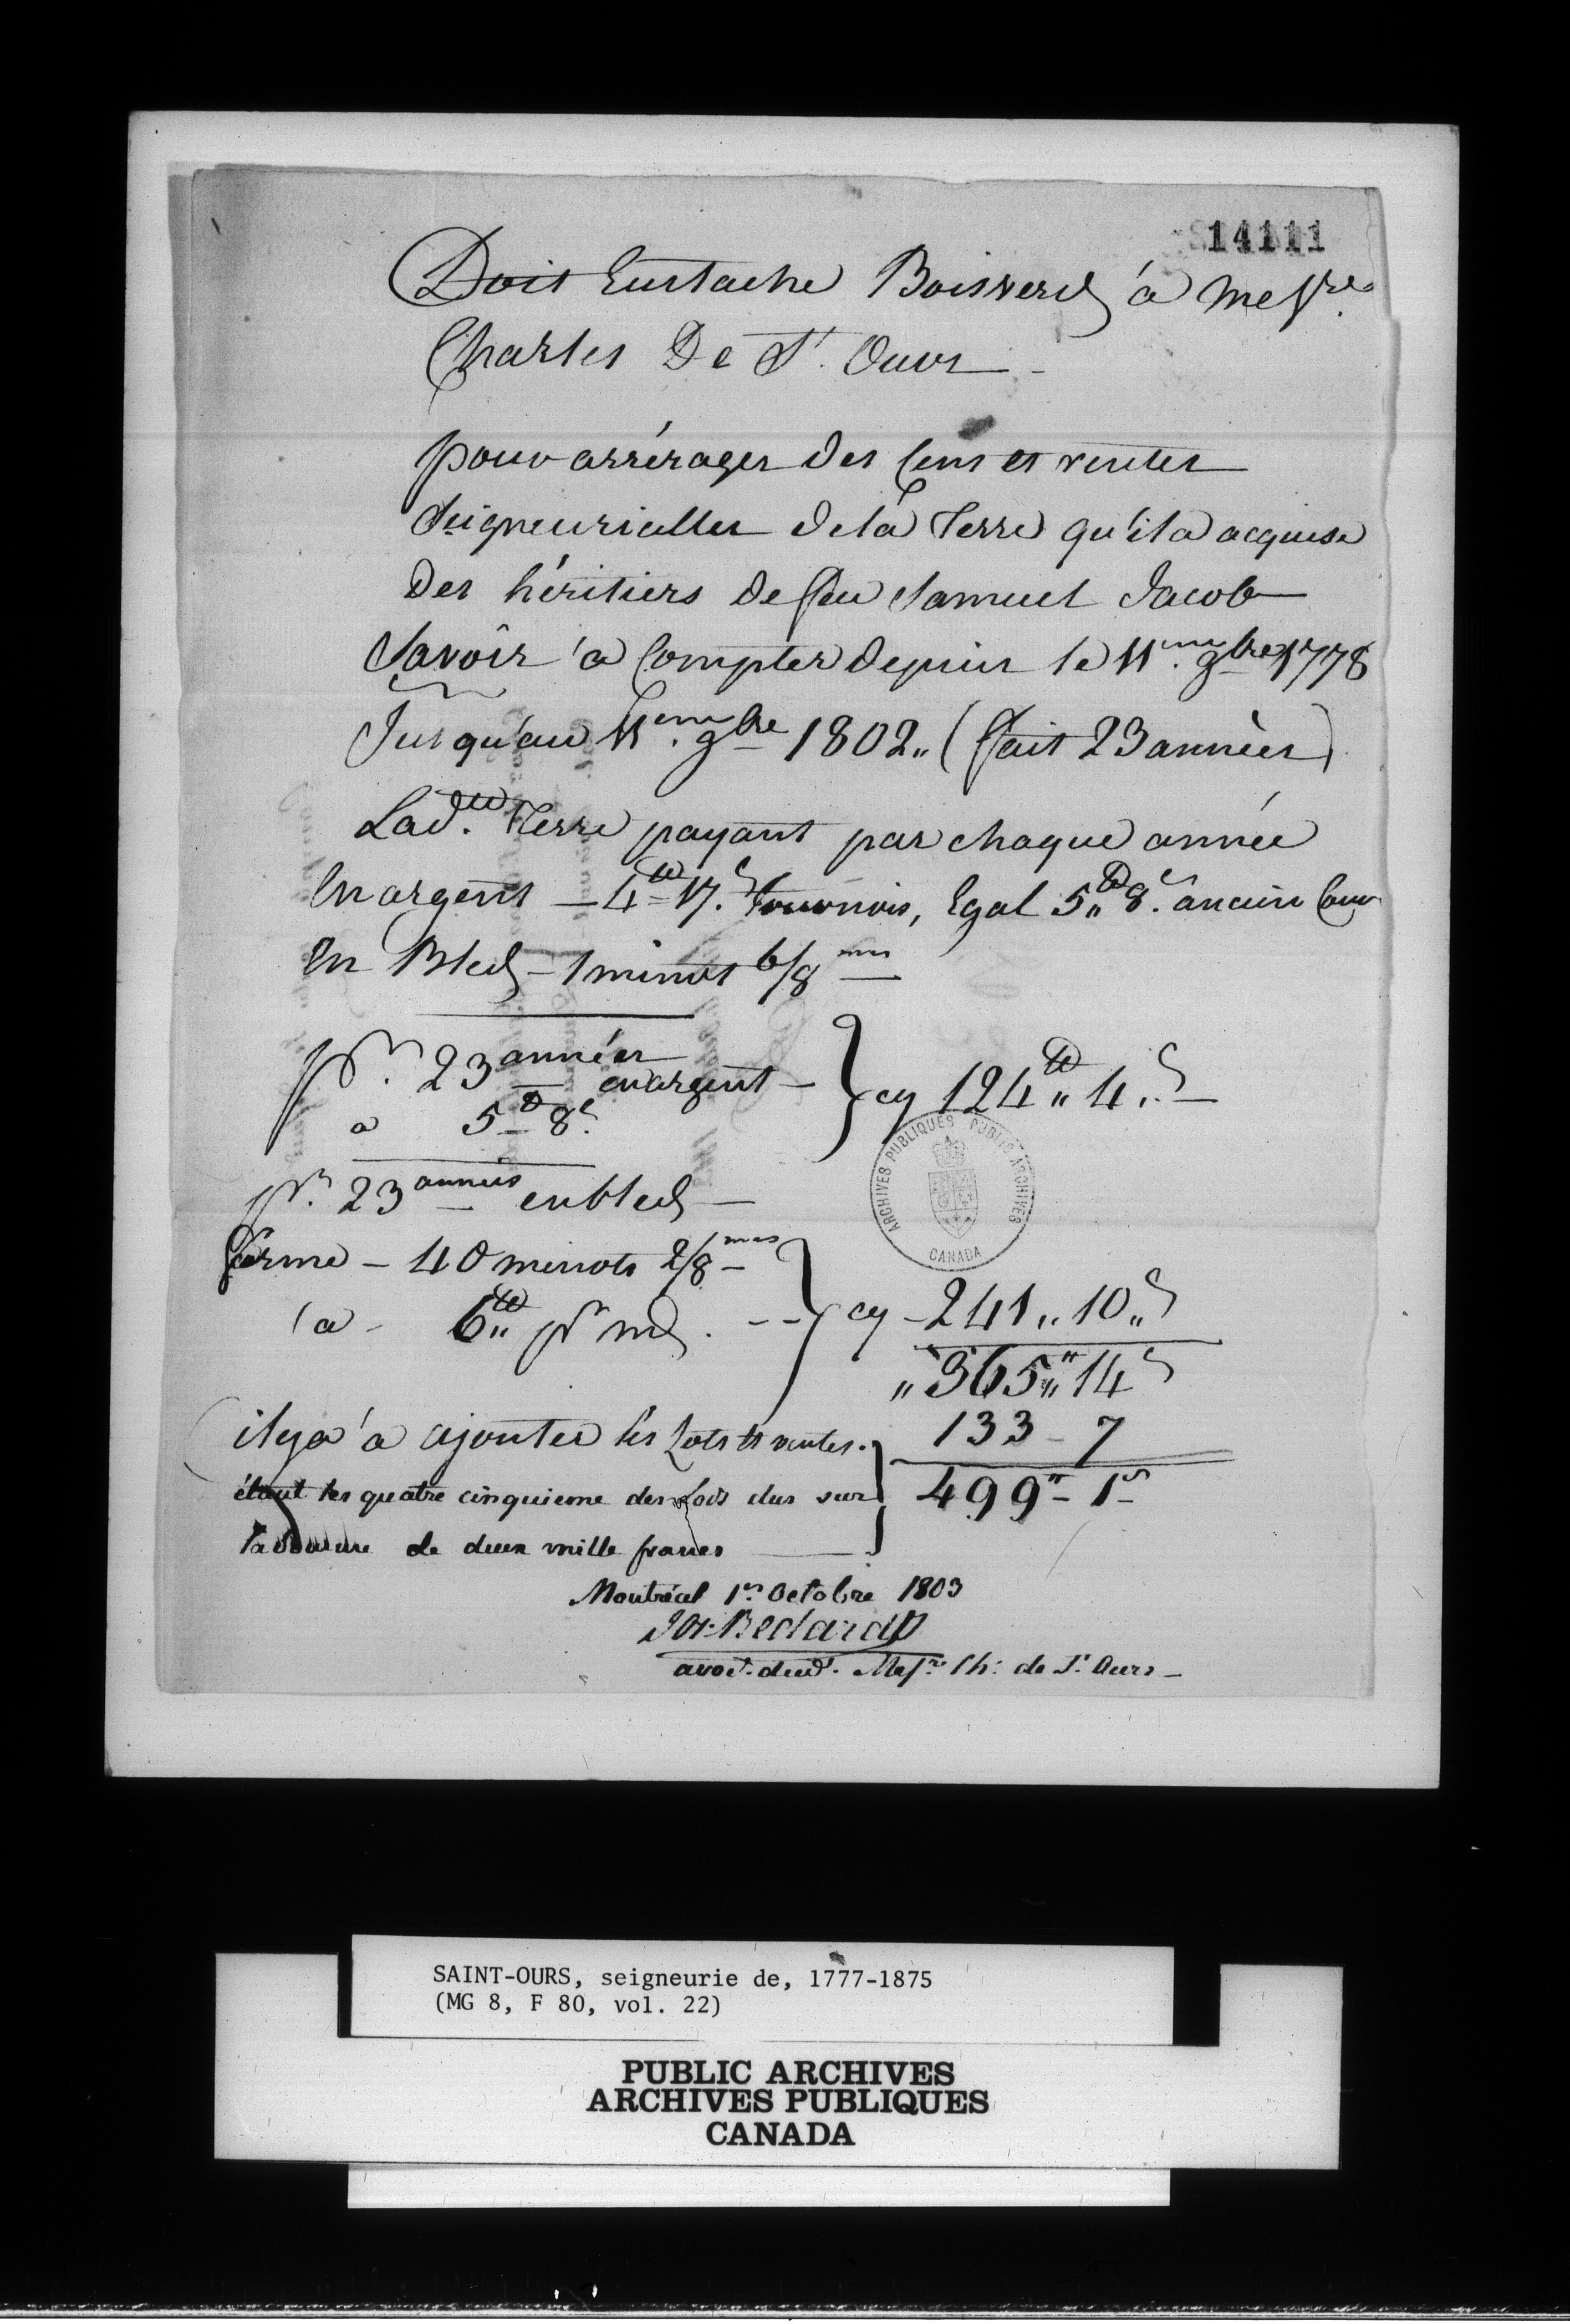 14111
Doit Eustache Boisverd à Messre
Charles De St. Ours
pour arrérages des Cens et rentes
Seigneurialles de la Terre qu'il a acquise
des héritiers de feu Samuel Jacob
Savoir à Compter depuis le 11eme. 9bre 1778
Jusqu'au 11eme. 9bre 1802 „ (fait 23 années)
Ladte. Terre payant par chaque année
En argent — 4tt = 17s. tournois, Egal 5tt „ 8s. ancien Cour
En Bled — 1 minot 6/8mes
pr. 23 années en argent —
a 5tt 8s.
cy 124tt „ 4s. —
pr. 23 années en bled —
ferme — 40 minots 2/8mes —
a - 6tt „ pr md. --
cy - 241 „ 10 „ s
„ 365 „ 14s
il y a à ajouter les Lots et ventes.
133 - 7
étant les quatre cinquieme des Lods dus sur
499" - 1s -
de deux mille francs
Montréal 1er Octobre 1803
Jos. Bedard
avoct. dud. Messre Ch: de St. Ours —
ARCHIVES PUBLIQUES PUBLIC ARCHIVES
CANADA
SAINT-OURS, seigneurie de, 1777-1875
(MG 8, F 80, vol. 22)
PUBLIC ARCHIVES
ARCHIVES PUBLIQUES
CANADA